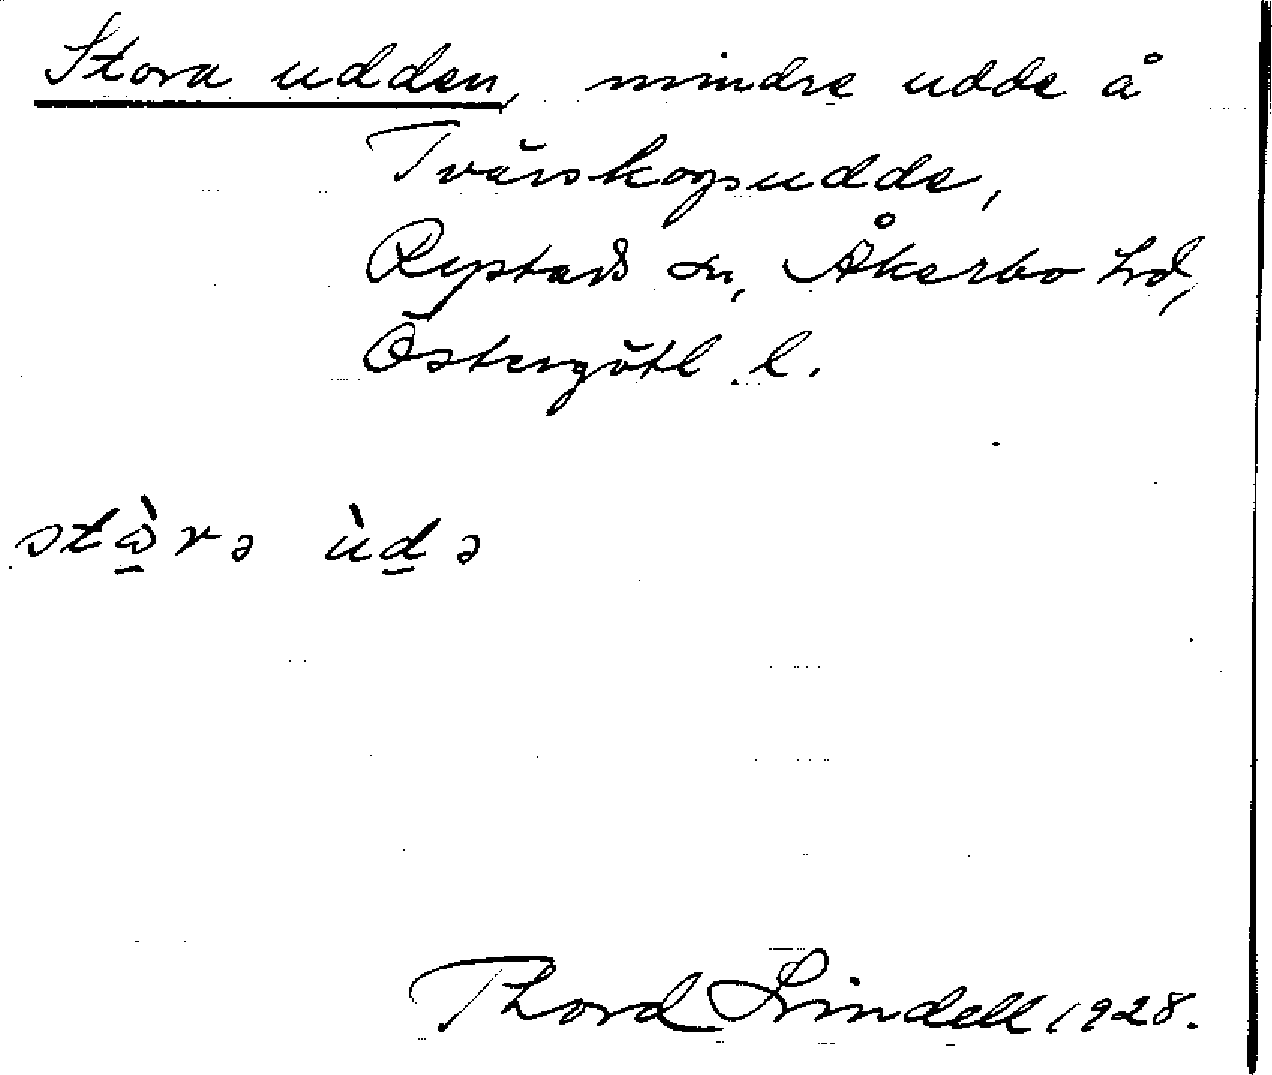 Stora udden, mindre udde å
Tvärskogsudde,
Rystads sn, Åkerbo hd,
Östergötl. l.
stɷ̀rə ùdə
Thord Lindell 1928.